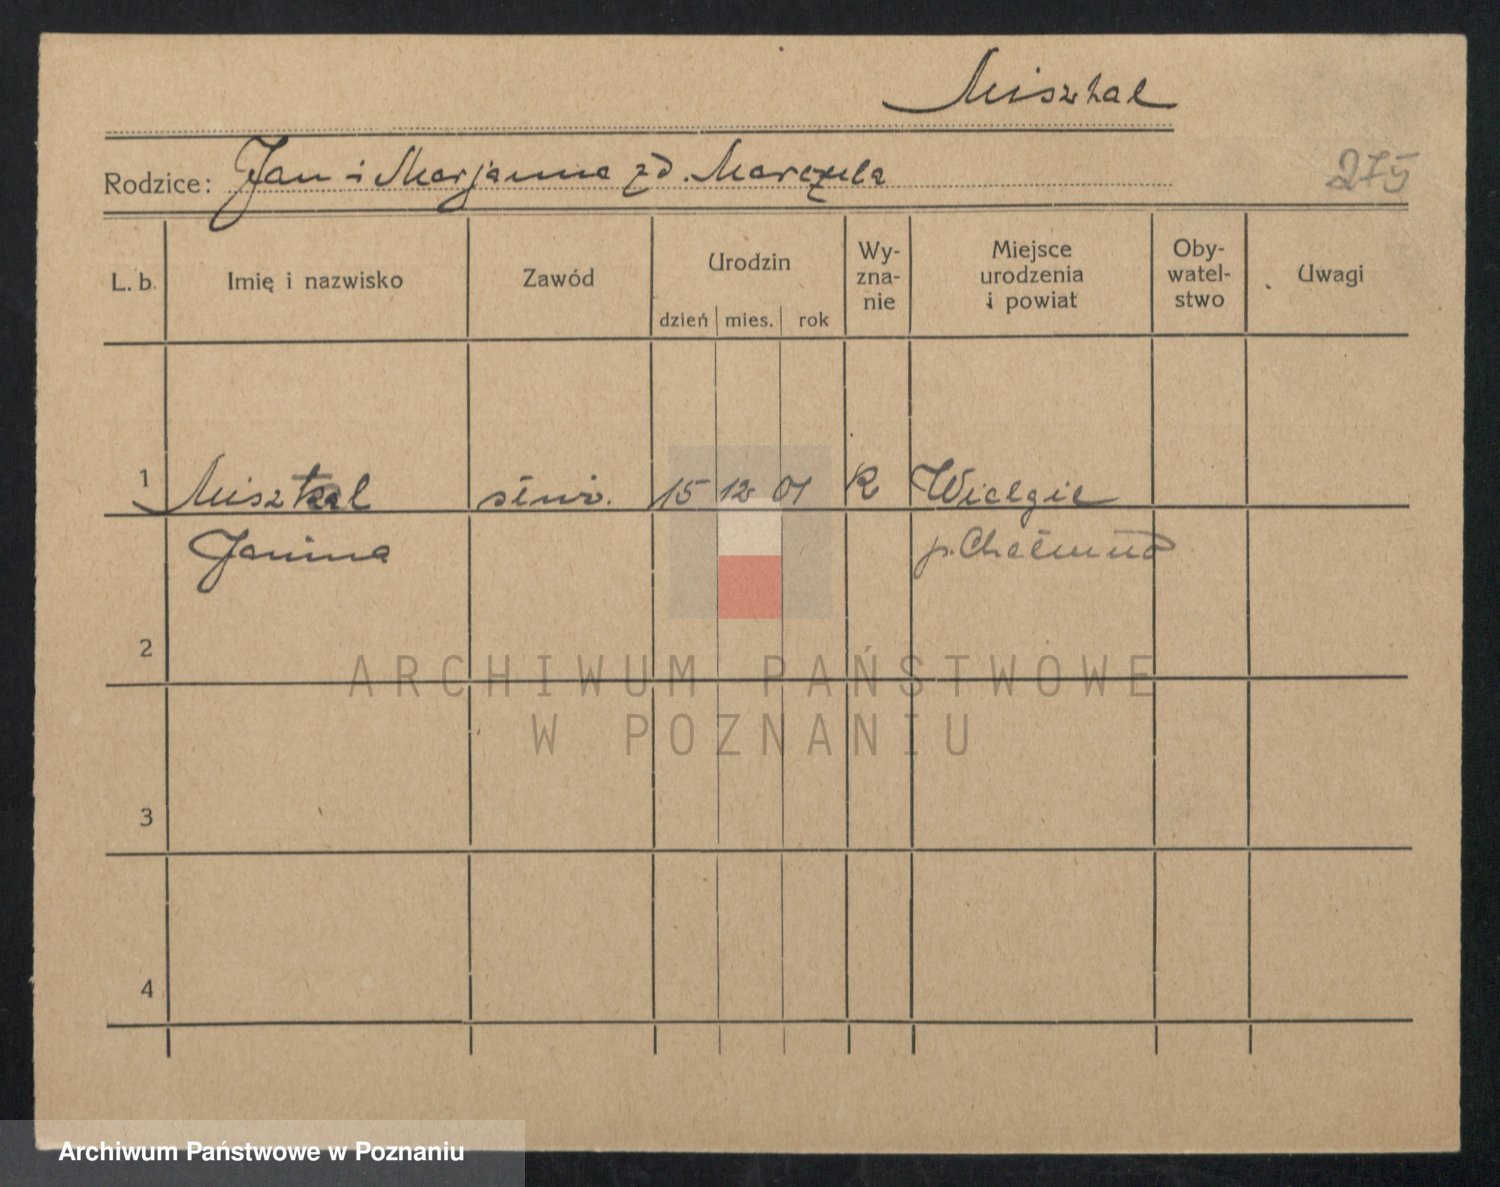 Misztal
Rodzice: Jan i Marjanna zd.
275
L. b. Imię i nazwisko Zawód Urodzin Wy-zna-nie Miejsce urodzenia i powiat Oby-watel-stwo Uwagi
dzień mies. rok
1 Misztal 15 12 01 K Wielgie
Janina p.
2
3
4
ARCHIWUM PAŃSTWOWE
W POZNANIU
Archiwum Państwowe w Poznaniu